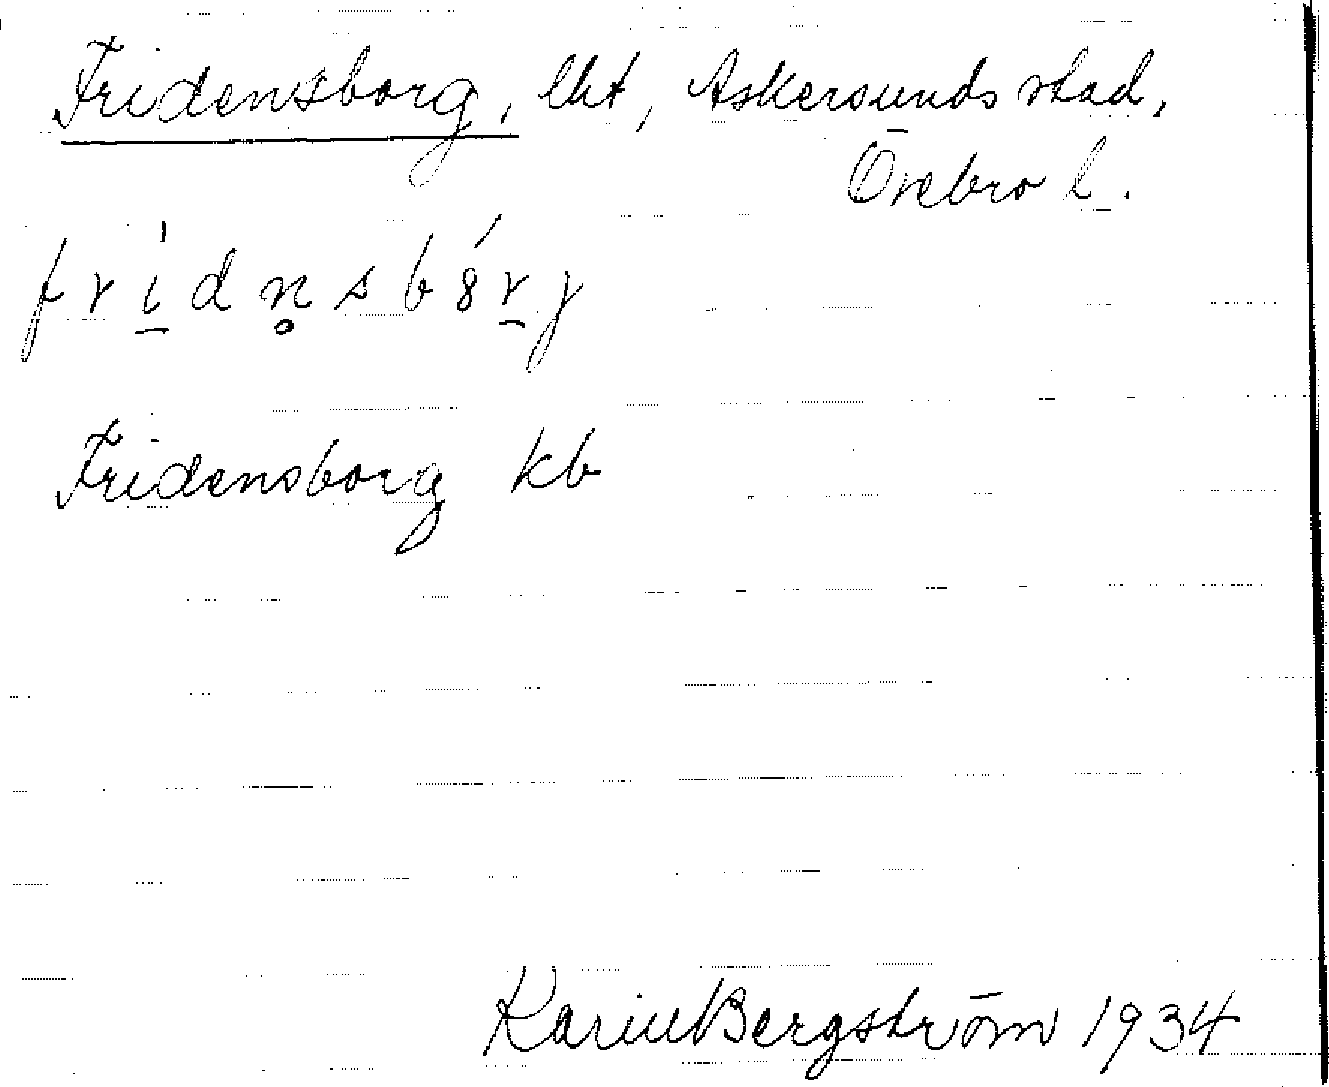 Fridensborg, lht, Askersunds stad,
Örebro l.
fri̱dn̥sbȣṟj
Fridensborg kb
Karin Bergström 1934